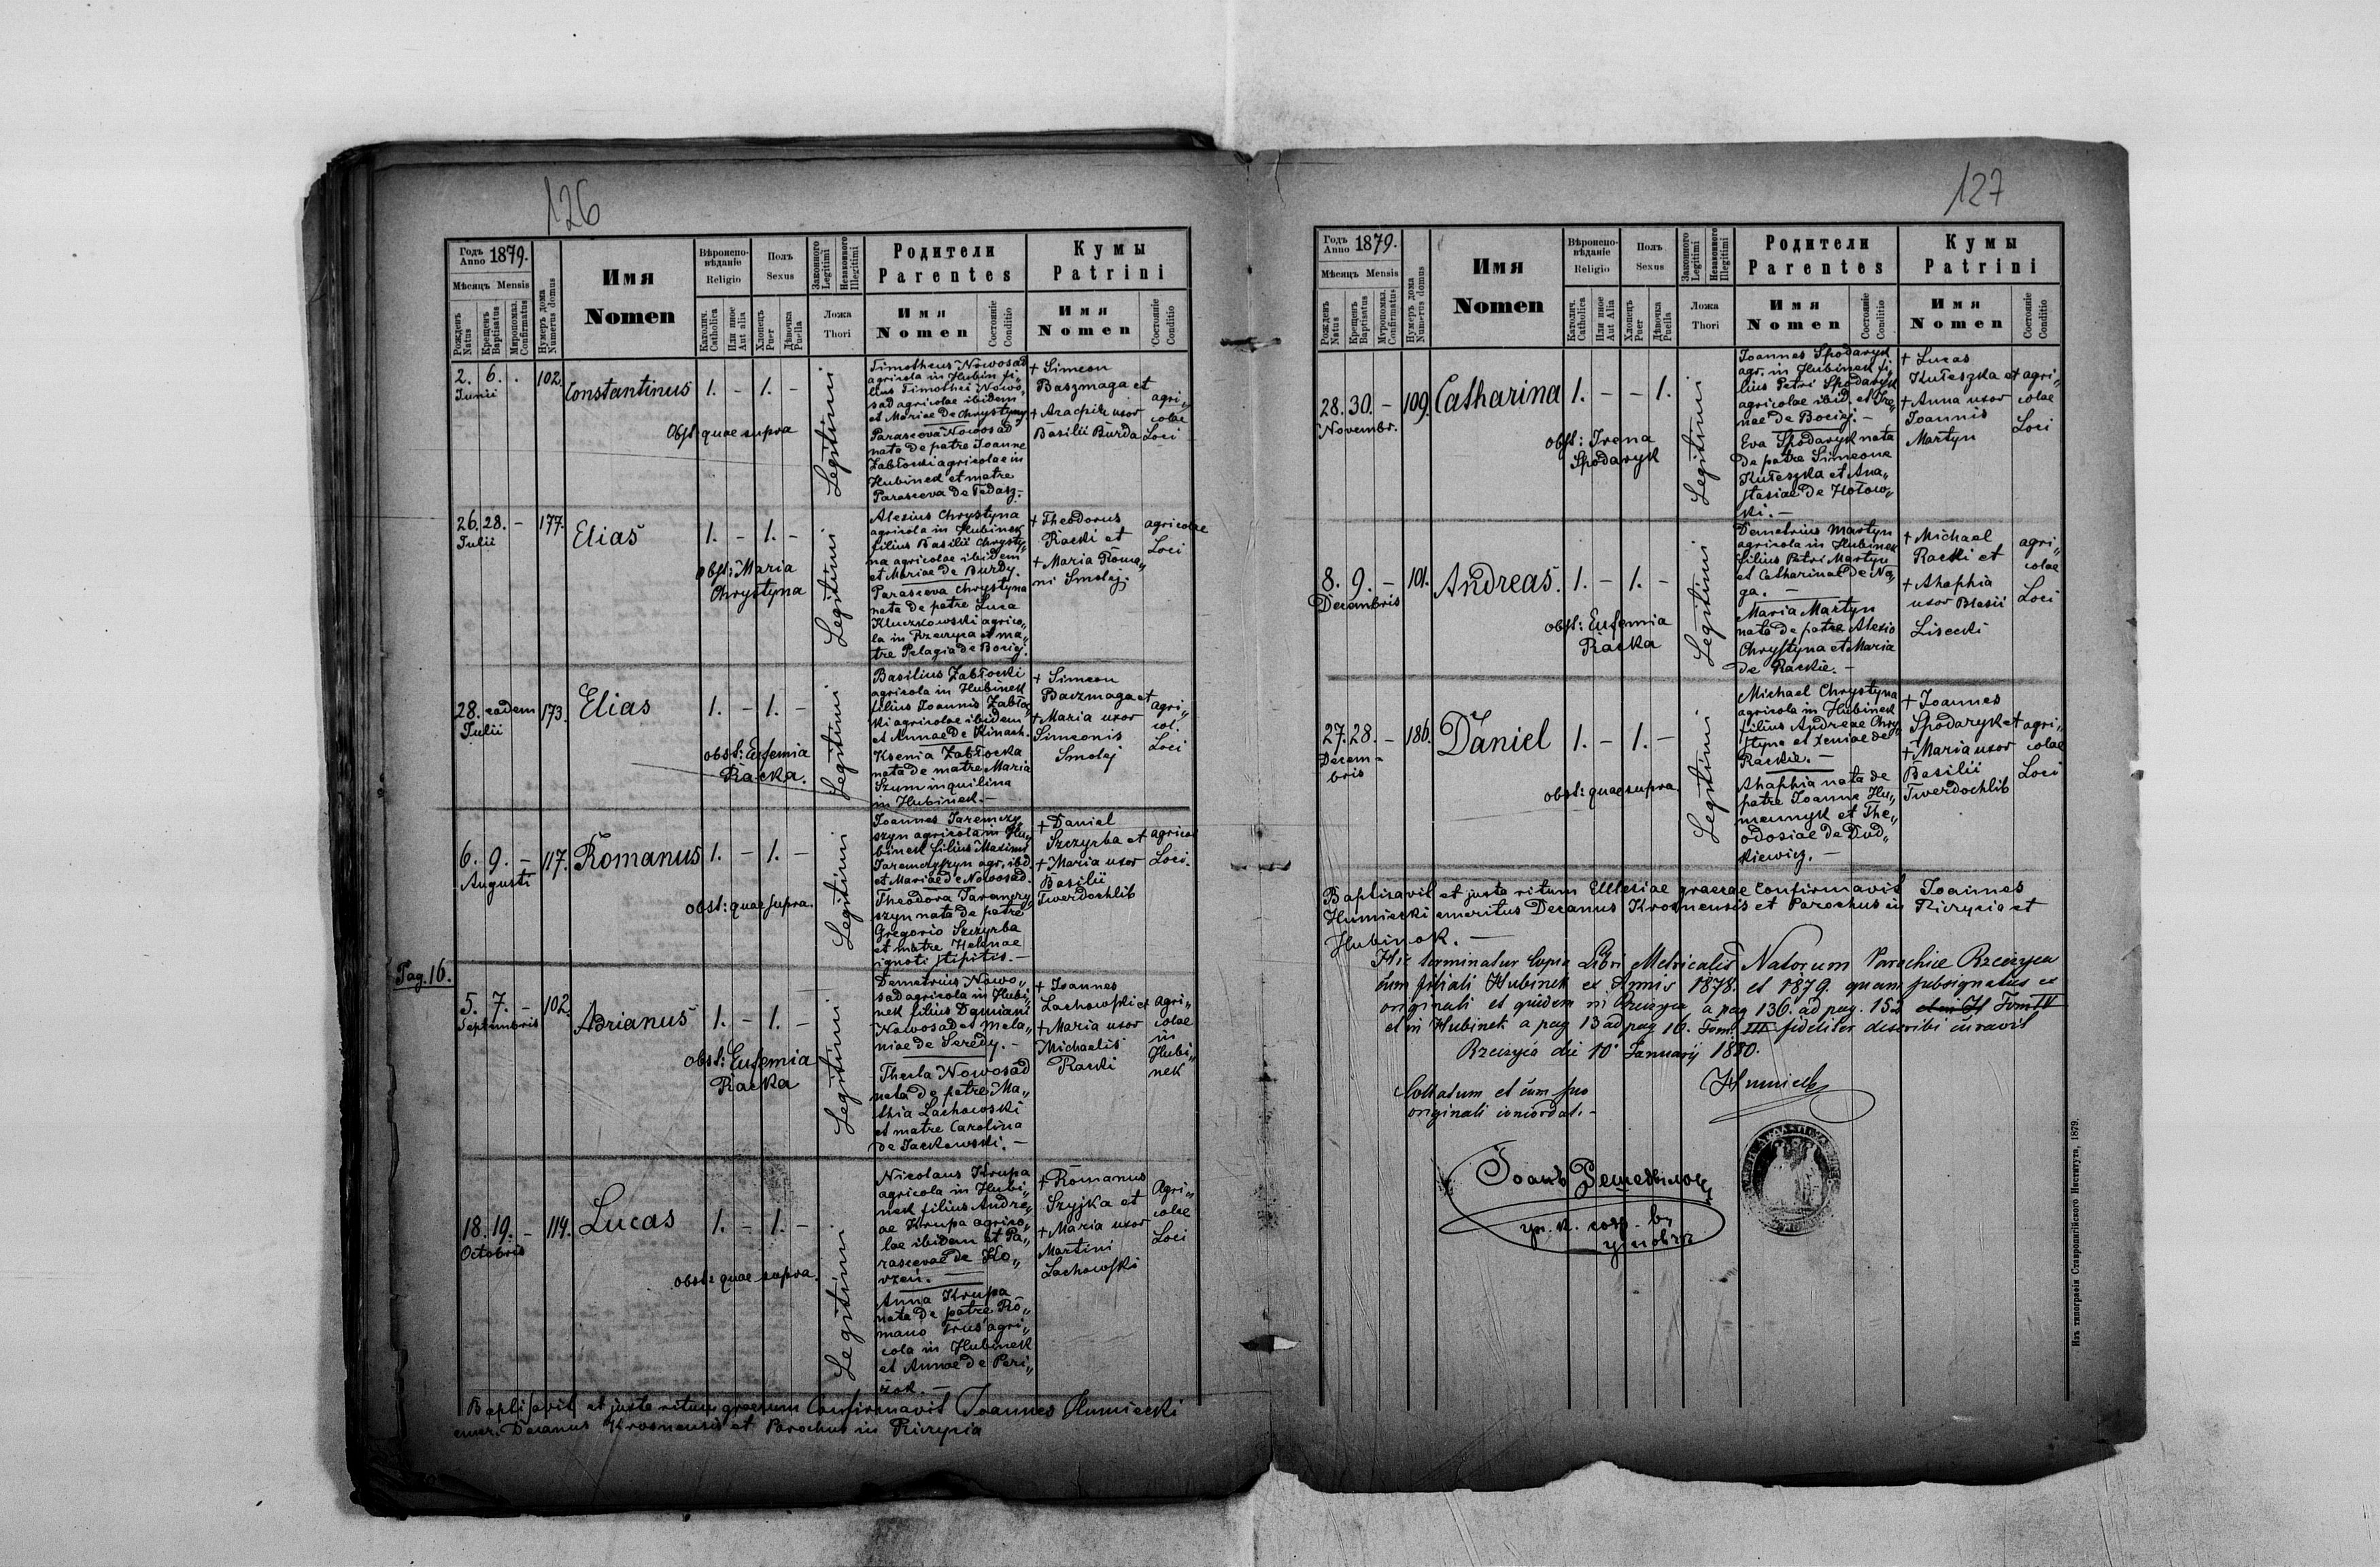 126
Годъ Anno 1879.
Мѣсяцъ Mensis
Рожденъ Natus
Крещенъ Baptisatus
Миропомаз. Confirmatus
Нумеръ дома Numerus domus
Имя Nomen
Вѣроисповѣданіе Religio
Католич. Catholica
Или иное Aut alia
Полъ Sexus
Хлопецъ Puer
Дѣвочка Puella
Законного Legitimi
Незаконного Illegitimi
Ложа Thori
Родители Parentes
Имя Nomen
Состояніе Conditio
Кумы Patrini
Имя Nomen
Состояніе Conditio
2. 6. . 102. Constantinus 1. - 1. -
Junii
Obst: quae supra
Legitimi
Timotheus Nowosad
agricola in Hubin fi„
lius Timothei Nowo„
sad agricolae ibidem
et Mariae de Chrystyny
Parasceva Nowosad
nata de patre Joanne
Zabłocki agricolae in
Hubinek et matre
Parasceva de Fedasz.-
+ Simeon
Baszmaga et
+ Aracpih uxor
Basilii Burda
agri„
colae
Loci
26. 28. - 177. Elias 1. - 1. -
Julii
obst: Maria
Chrystyna
Legitimi
Alexius Chrystyna
agricola in Hubinek
filius Basilii Chrysty„
na agricolae ibidem
et Mariae de Burdy.
Parasceva Chrystyna
nata de patre Luca
Kluczkowski agrico„
la in Rzeczyca et ma„
tre Pelagia de Bocij.
+ Theodorus
Racki et
+ Maria Roma„
ni Smolej.
agricolae
Loci
28. eadem 173. Elias 1. - 1. -
Julii
obst: Eufemia
Racka.
Legitimi
Basilius Zabłocki
agricola in Hubinek
filius Joannis Zabło„
ki agricolae ibidem
et Annae de Kinach.
Ksenia Zabłocka
nata de matre Maria
Szum inquilina
in Hubinek.-
+ Simeon
Baczmaga et
+ Maria uxor
Simeonis
Smolej
agri„
col.
Loci
6. 9. - 117. Romanus 1. - 1. -
Augusti
obst: quae supra.
Legitimi
Joannes Jaremczy
szyn agricola in Hu„
binek filius Maximi
Jaremczyszyn agr. ibd
et Mariae de Nowosad.
Theodora Jaremczy„
szyn nata de patre
Gregorio Szczyrba
et matre Helenae
ignoti stipitis.-
+ Daniel
Szczyrba et
+ Maria uxor
Basilii
Twerdochlib
agricol
Loci.
Pag. 16.
5. 7. - 102. Adrianus 1. - 1. -
Septembris
obst: Eufemia
Racka
Legitimi
Demetrius Nowo„
sad agricola in Hubi„
nek filius Damiani
Nowosad et Mela„
niae de Seredy.-
Thecla Nowosad
nata de patre Ma„
thia Lachowski
et matre Carolina
de Jackowski.-
+ Joannes
Lachowski et
+ Maria uxor
Michaelis
Racki
agri„
colae
in
Hubi„
nek
18. 19. - 114. Lucas 1. - 1. -
Octobris
obst: quae supra.
Legitimi
Nicolaus Krupa
agricola in Hubi„
nek filius Andre„
ae Krupa agrico„
lae ibidem et Pa„
rascevae de Ko„
rzeń.
Anna Krupa
nata de patre Ro„
mano Trus agri„
cola in Hubinek
et Annae de Peri„
żok.-
+ Romanus
Szyjka et
+ Maria uxor
Martini
Lachowski
Agri„
colae
Loci
Baptisavit et juxta ritum graecum Confirmavit Joannes Humiecki
emer. Decanus Krosnensis et Parochus in Ricrycia
127
Годъ Anno 1879.
Мѣсяцъ Mensis
Рожденъ Natus
Крещенъ Baptisatus
Муропомаз. Confirmatus
Нумеръ дома Numerus domus
Имя Nomen
Вѣроисповѣданіе Religio
Католич. Catholica
Или иное Aut Alia
Полъ Sexus
Хлопецъ Puer
Дѣвочка Puella
Законного Legitimi
Незаконного Illegitimi
Ложа Thori
Родители Parentes
Имя Nomen
Состояніе Conditio
Кумы Patrini
Имя Nomen
Состояніе Conditio
28. 30. - 109. Catharina 1. - - 1.
Novembr.
obst: Irena
Spodaryk
Legitimi
Joannes Spodaryk
agr. in Hubinek fi„
lius Petri Spodaryk
agricolae ibid. et Ire„
nae de Bocij.-
Eva Spodaryk nata
de patre Simeone
Kuteszka et Ana„
stasiae de Hołow„
ki.-
+ Lucas
Kuteszka et
+ Anna uxor
Joannis
Martyn
agri„
colae
Loci
8. 9. - 101. Andreas. 1. - 1. -
Decembris
obst: Eufemia
Racka
Legitimi
Demetrius Martyn
agricola in Hubinek
filius Petri Martyn
et Catharinae de No„
ga.-
Maria Martyn
nata de patre Alexio
Chrystyna et Maria
de Rackie.-
+ Michael
Racki et
+ Ahaphia
uxor Blasii
Lisecki
agri„
colae
Loci
27. 28. - 186. Daniel 1. - 1. -
Decem-
bris
obst: quae supra
Legitimi
Michael Chrystyna
agricola in Hubinek
filius Andreae Chry„
styna et Xeniae de
Rackie.-
Ahaphia nata de
patre Joanne Hu„
mennyk et The„
odosiae de Dud„
kiewicz.-
+ Joannes
Spodaryk et
+ Maria uxor
Basilii
Twerdochlib
agri„
colae
Loci
Baptisavit et juxta ritum Ecclesiae graecae Confirmavit Joannes
Humiecki emeritus Decanus Krosnensis et Parochus in Ricrycia et
Hubinok.-
Hic terminatur Copia Libri Metricalis Natorum Parochiae Rzeczyca
cum filiali Hubinek ex Annis 1878. et 1879. quam subsignatus ex
originali et quidem in Rzeczyca a pag 136. ad pag. 152 Tom IV
et in Hubinek a pag 13 ad pag 16. Tom. III fideliter describi curavit
Rzeczyca die 10. Januarij 1880.
Humiecki
Collatum et cum suo
originali concordat.-
Изъ типографіи Ставропигійского Института, 1879.